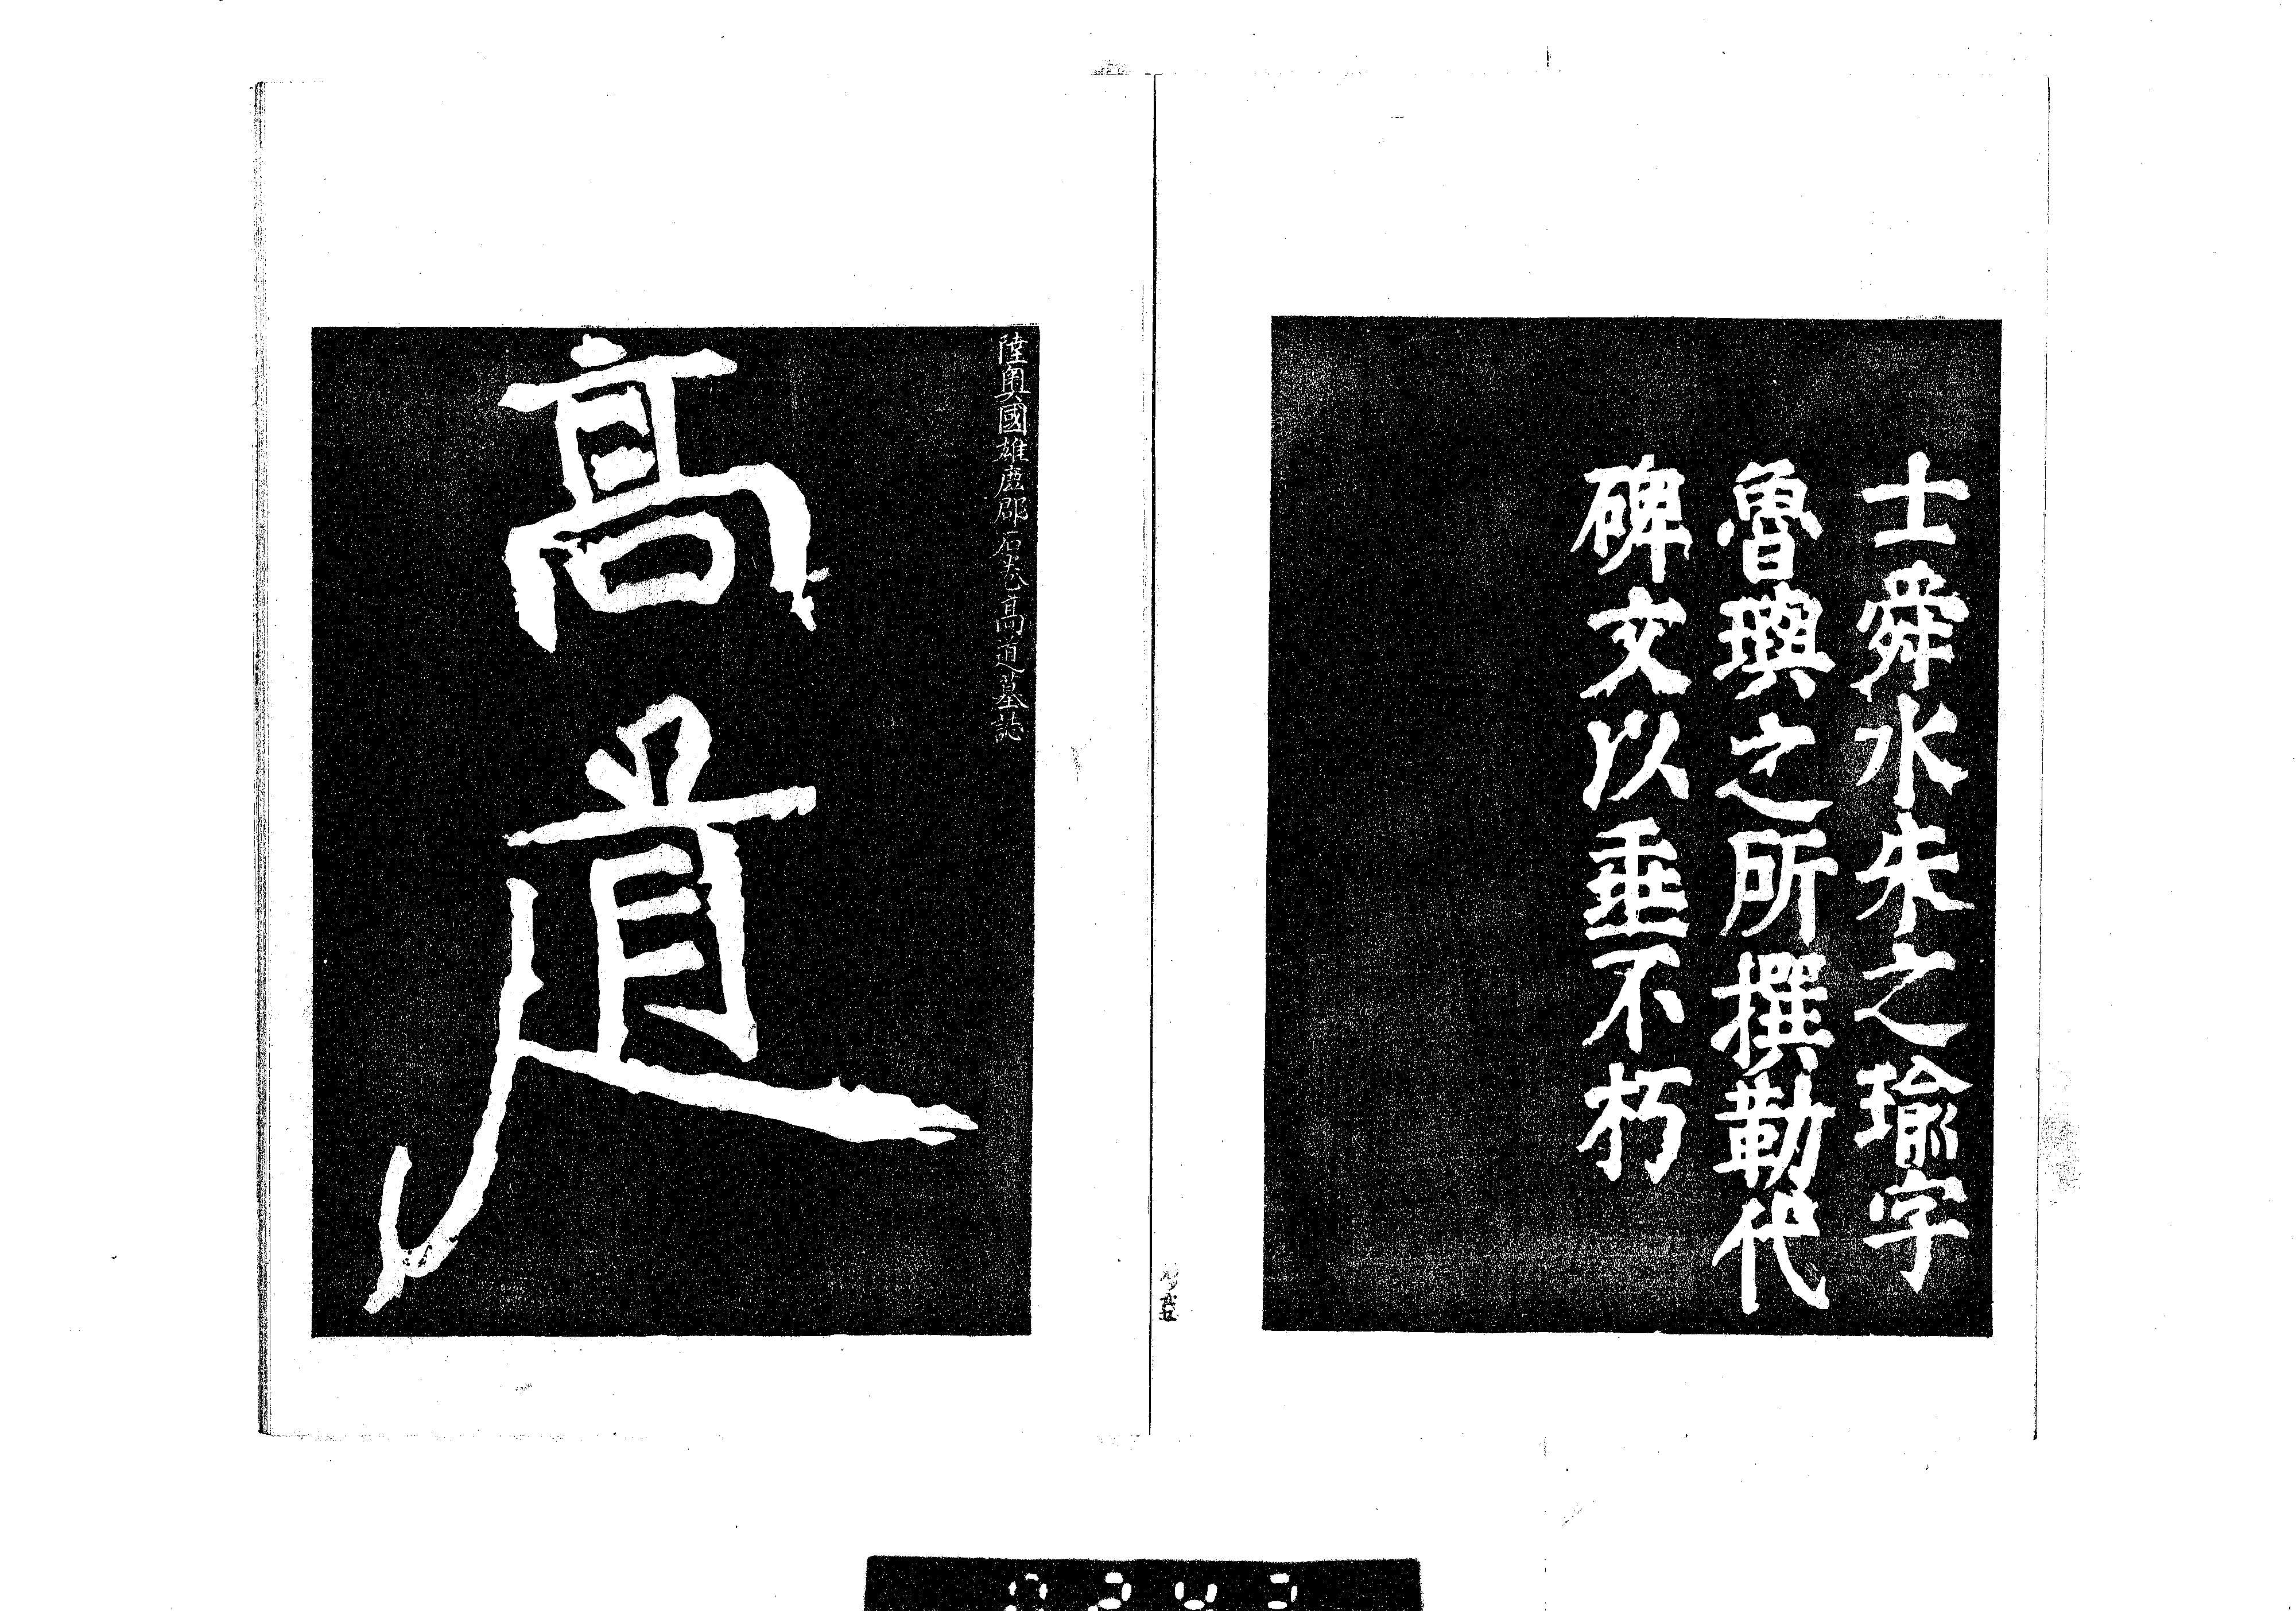 士舜水朱之瑜字
魯璵之所撰勒代
碑文以垂不朽
陸奧國雄鹿郡石巻高道墓誌
高道